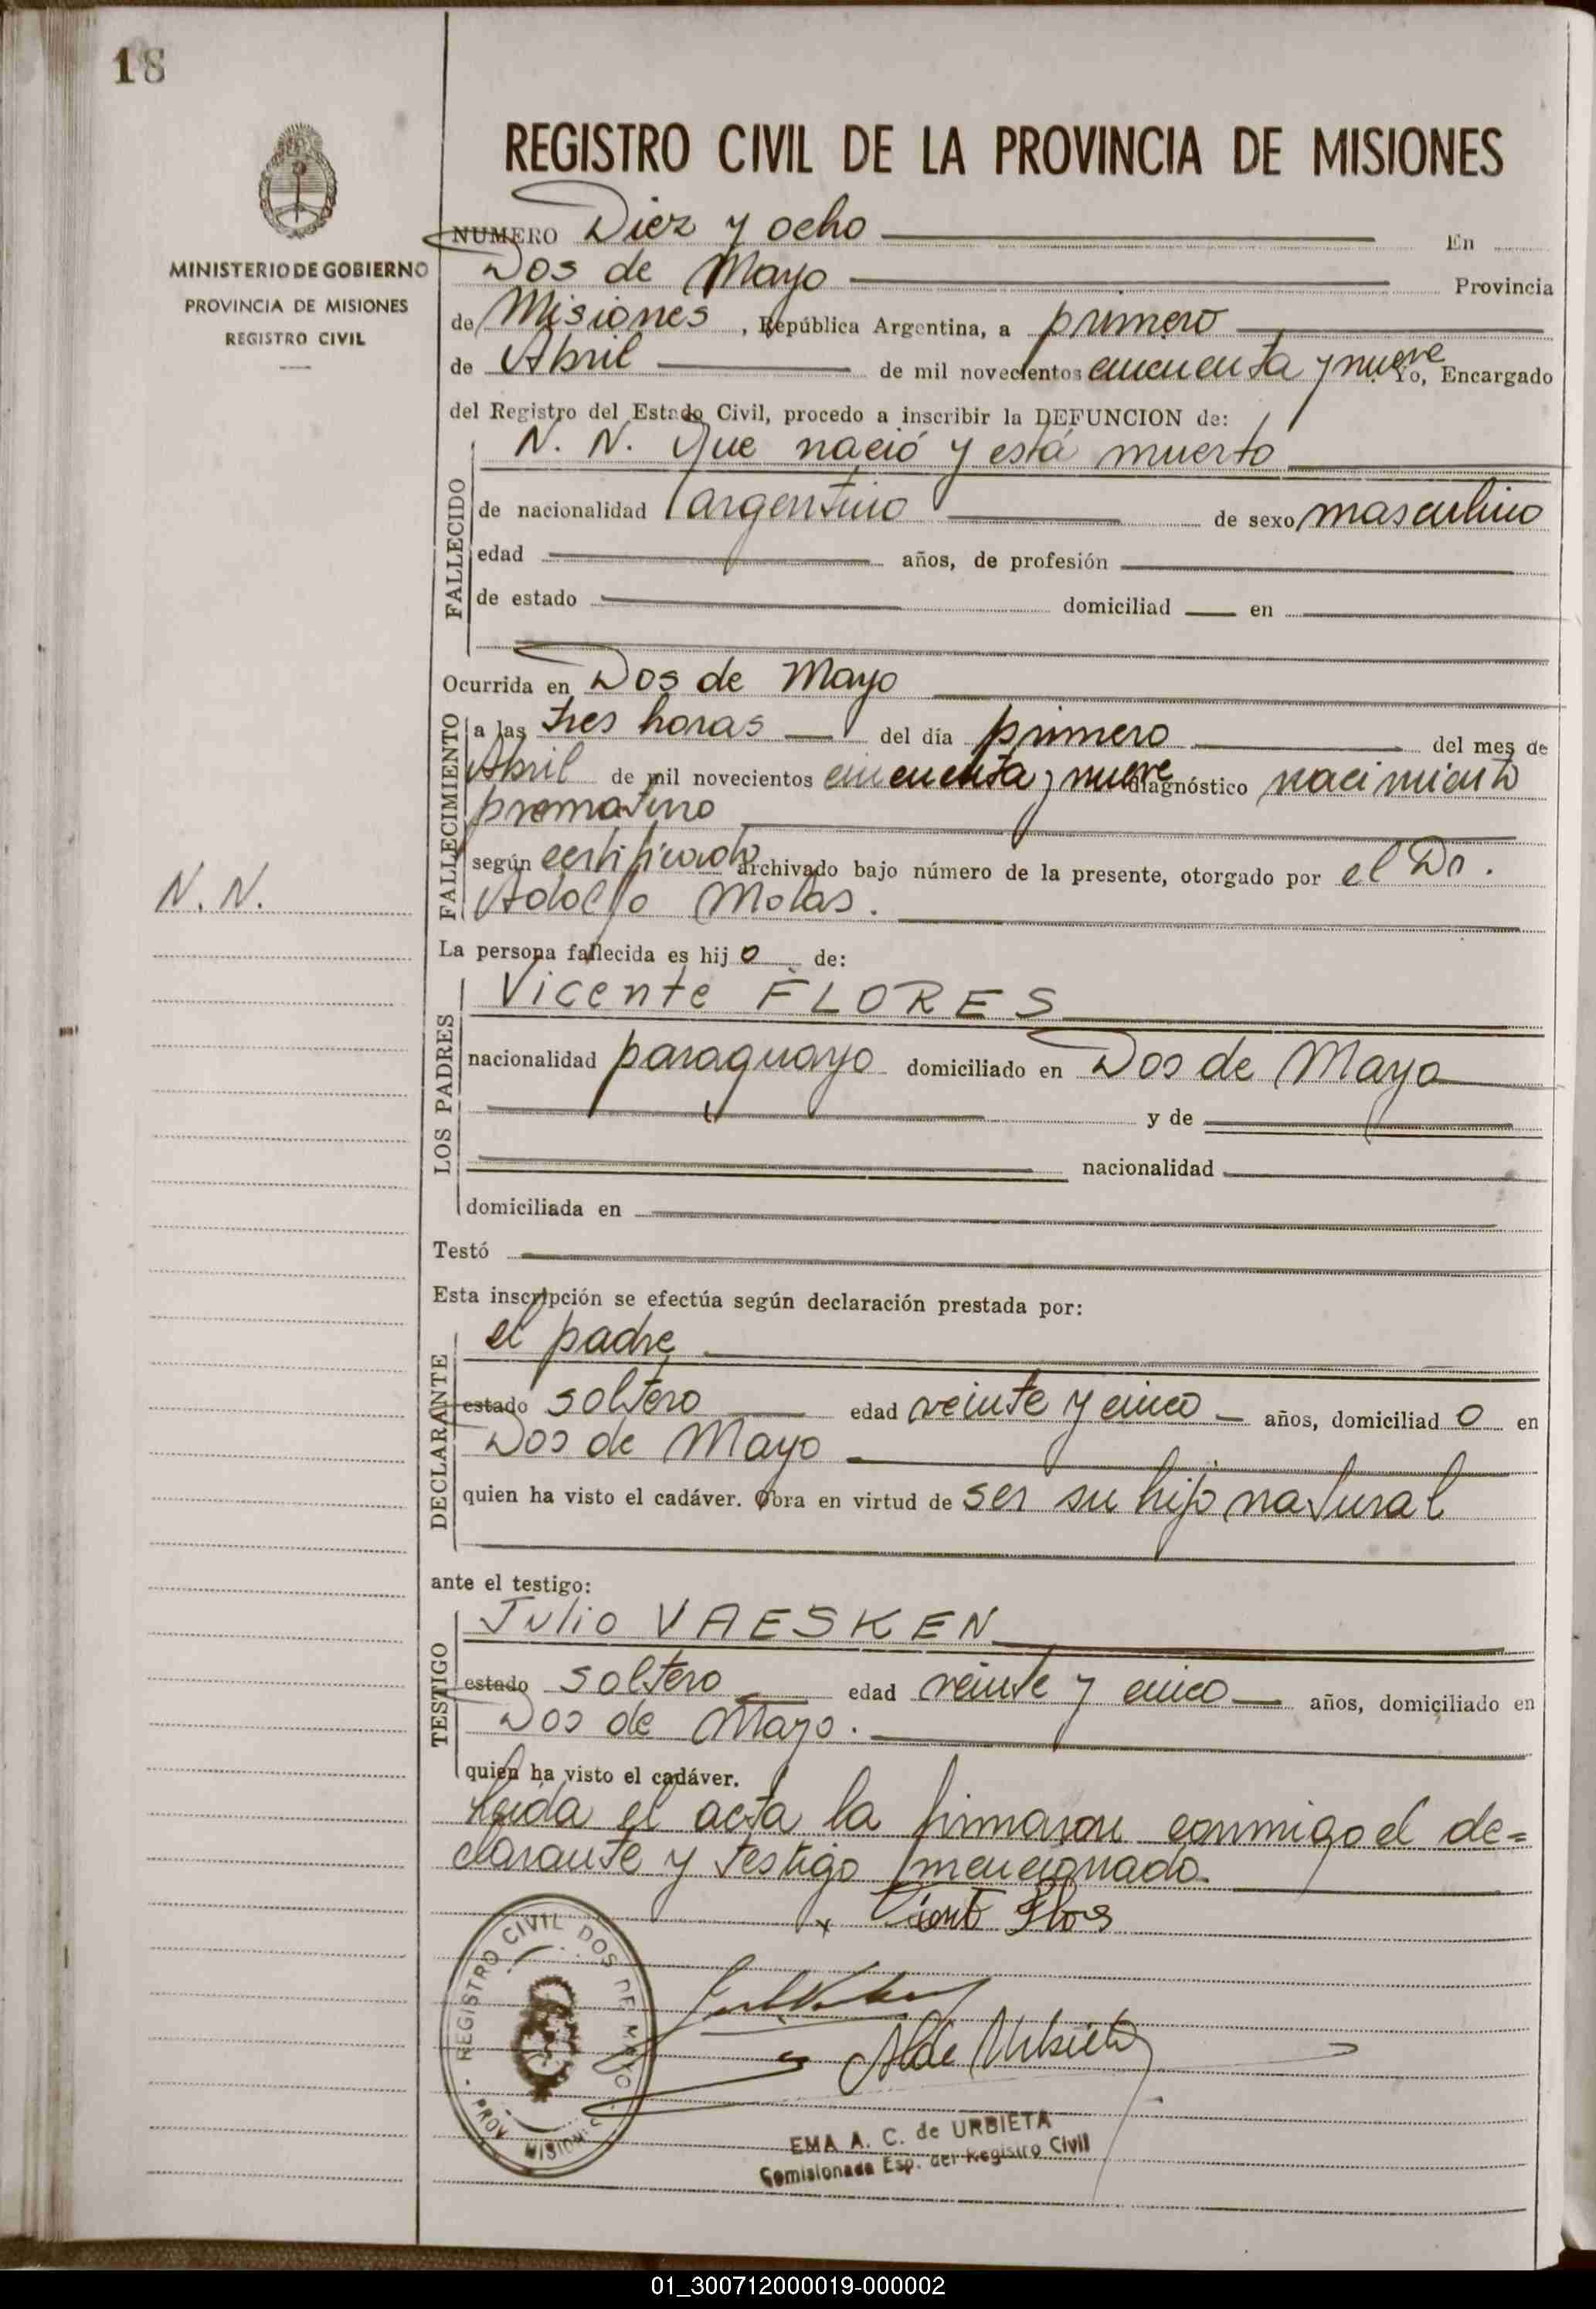 18
MINISTERIO DE GOBIERNO
PROVINCIA DE MISIONES
REGISTRO CIVIL
REGISTRO CIVIL DE LA PROVINCIA DE MISIONES
NUMERO Diez y ocho En
Dos de Mayo Provincia
de Misiones, República Argentina, a primero
de Abril de mil novecientos cincuenta y nueve Yo, Encargado
del Registro del Estado Civil, procedo a inscribir la DEFUNCION de:
N. N. Que nació y está muerto
FALLECIDO
de nacionalidad argentino de sexo masculino
edad años, de profesión
de estado domiciliad en
Ocurrida en Dos de Mayo
FALLECIMIENTO
a las tres horas del día primero del mes de
Abril de mil novecientos cincuenta y nueve diagnóstico nacimiento
prematuro
según certificado archivado bajo número de la presente, otorgado por el Dr.
Adolfo Molas.
N. N.
La persona fallecida es hijo de:
LOS PADRES
Vicente FLORES
nacionalidad paraguayo domiciliado en Dos de Mayo
y de
nacionalidad
domiciliada en
Testó
Esta inscripción se efectúa según declaración prestada por:
DECLARANTE
el padre
estado soltero edad veinte y cinco años, domiciliado en
Dos de Mayo
quien ha visto el cadáver. Obra en virtud de ser su hijo natural
ante el testigo:
TESTIGO
Julio VAESKEN
estado soltero edad veinte y cinco años, domiciliado en
Dos de Mayo.
quien ha visto el cadáver.
Leida el acta la firmaron conmigo el de=
clarante y testigo mencionado.
x Vicente Flores
REGISTRO CIVIL DOS DE MAYO
PROV. MISIONES
EMA A. C. de URBIETA
Comisionada Esp. del Registro Civil
01_300712000019-000002